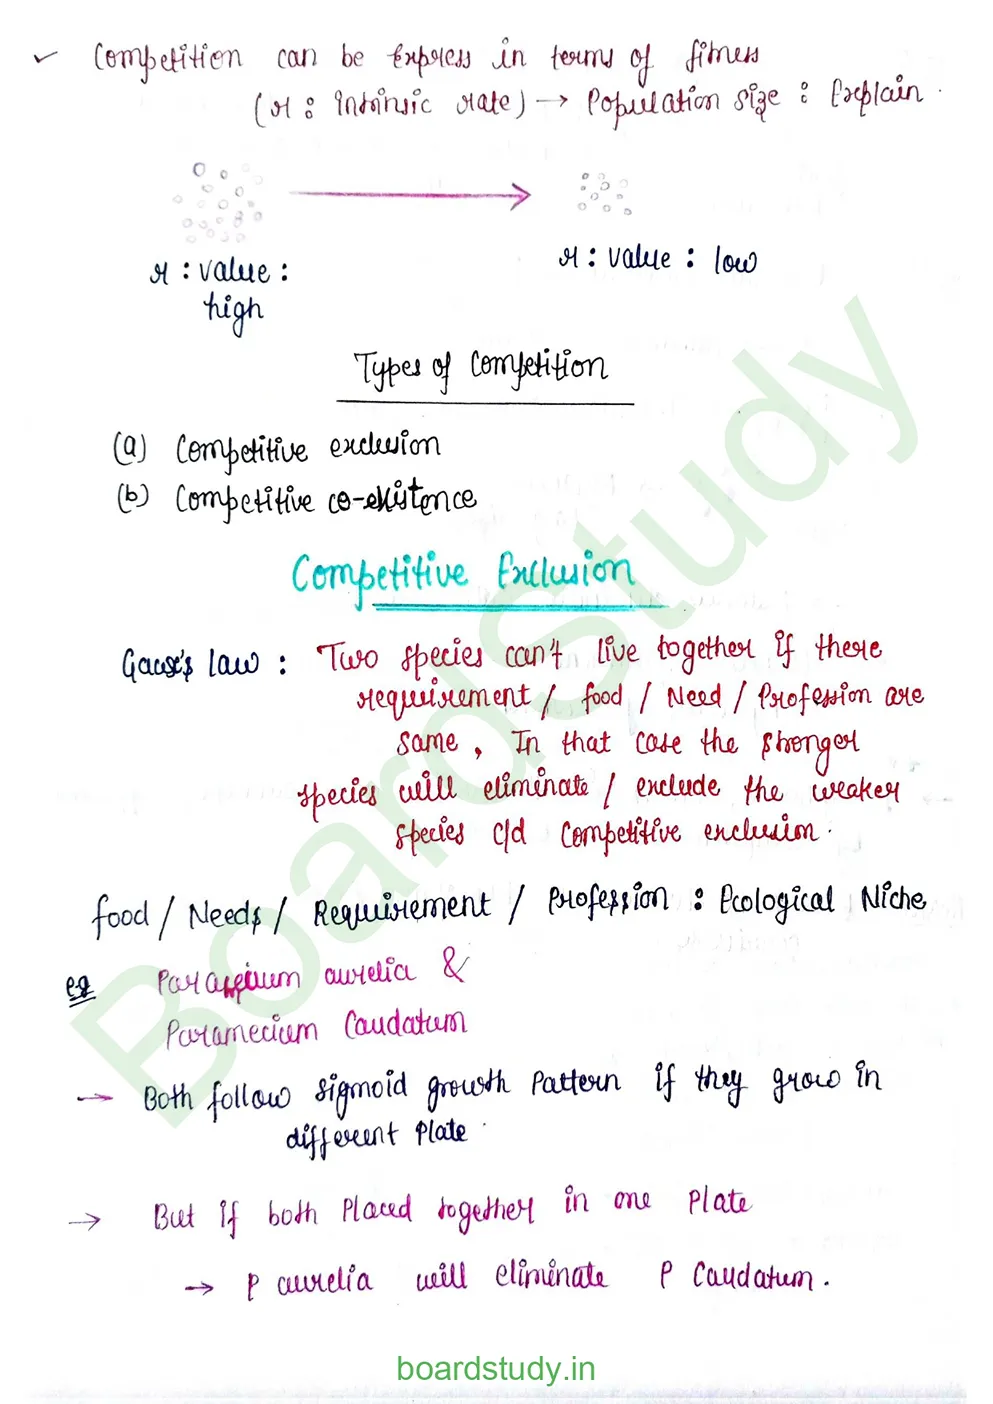 ✓ Competition can be Express in terms of fitness
(r : intrinsic rate) → Population size : Explain.
r : value : high
r : value : low
Types of Competition
(a) Competitive exclusion
(b) Competitive co-existence
Competitive Exclusion
Gause's law : Two species can't live together if there
requirement / food / Need / Profession are
same, In that case the stronger
species will eliminate / exclude the weaker
species c/d Competitive exclusion.
food / Needs / Requirement / Profession : Ecological Niche
e.g Paramecium aurelia &
Paramecium Caudatum
→ Both follow sigmoid growth Pattern if they grow in
different Plate.
→ But if both Placed together in one Plate
→ P aurelia will eliminate P Caudatum.
Boardstudy
boardstudy.in